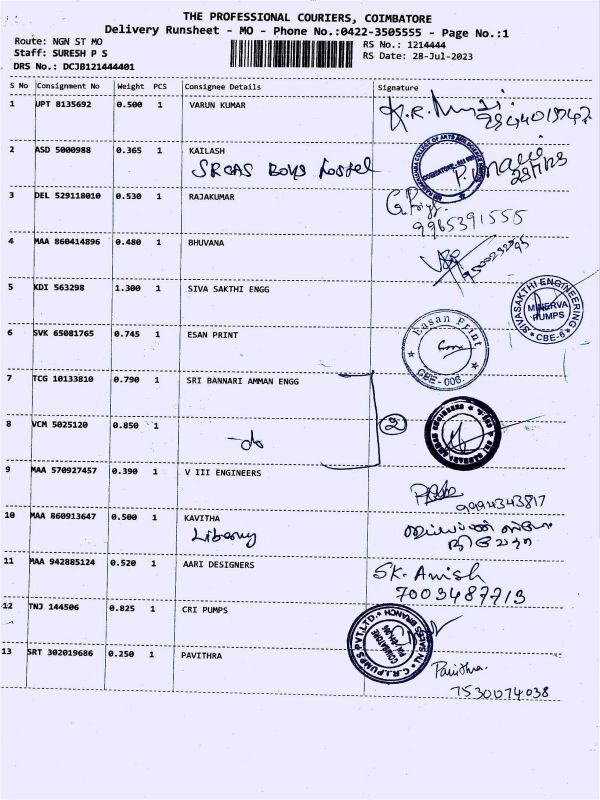 THE PROFESSIONAL COURIERS, COIMBATORE
Delivery Runsheet - MO - Phone No.:0422-3505555 - Page No.:1
Route: NGN ST MO
RS No.: 1214444
Staff: SURESH P S
RS Date: 28-Jul-2023
DRS No.: DCJB121444401
S No Consignment No Weight PCS Consignee Details Signature
1 UPT 8135692 0.500 1 VARUN KUMAR
2 ASD 5000988 0.365 1 KAILASH
SRCAS Boys hostel
3 DEL 529118010 0.530 1 RAJAKUMAR
9965391555
4 MAA 860414896 0.480 1 BHUVANA
5 KDI 563298 1.300 1 SIVA SAKTHI ENGG
SIVASAKTHI ENGINEERING
MINERVA
PUMPS
CBE-6
6 SVK 65081765 0.745 1 ESAN PRINT
Easan Print
CBE - 006.
7 TCG 10133810 0.790 1 SRI BANNARI AMMAN ENGG
8 VCM 5025120 0.850 1
-do
2
9 MAA 570927457 0.390 1 V III ENGINEERS
9994343817
10 MAA 860913647 0.500 1 KAVITHA
11 MAA 942885124 0.520 1 AARI DESIGNERS
SK. Anish
7003487713
12 TNJ 144506 0.825 1 CRI PUMPS
C.R.I. PUMPS PVT. LTD.
13 SRT 302019686 0.250 1 PAVITHRA
Pavithra.
7530074038